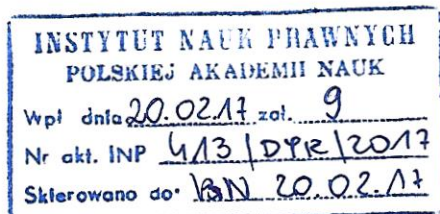 INSTYTUT NAUK PRAWNYCH
POLSKIEJ AKADEMII NAUK
Wpł dnia 20.02.17 zał. 9
Nr akt. INP 413/DYR/2017
Skierowano do: BN 20.02.17